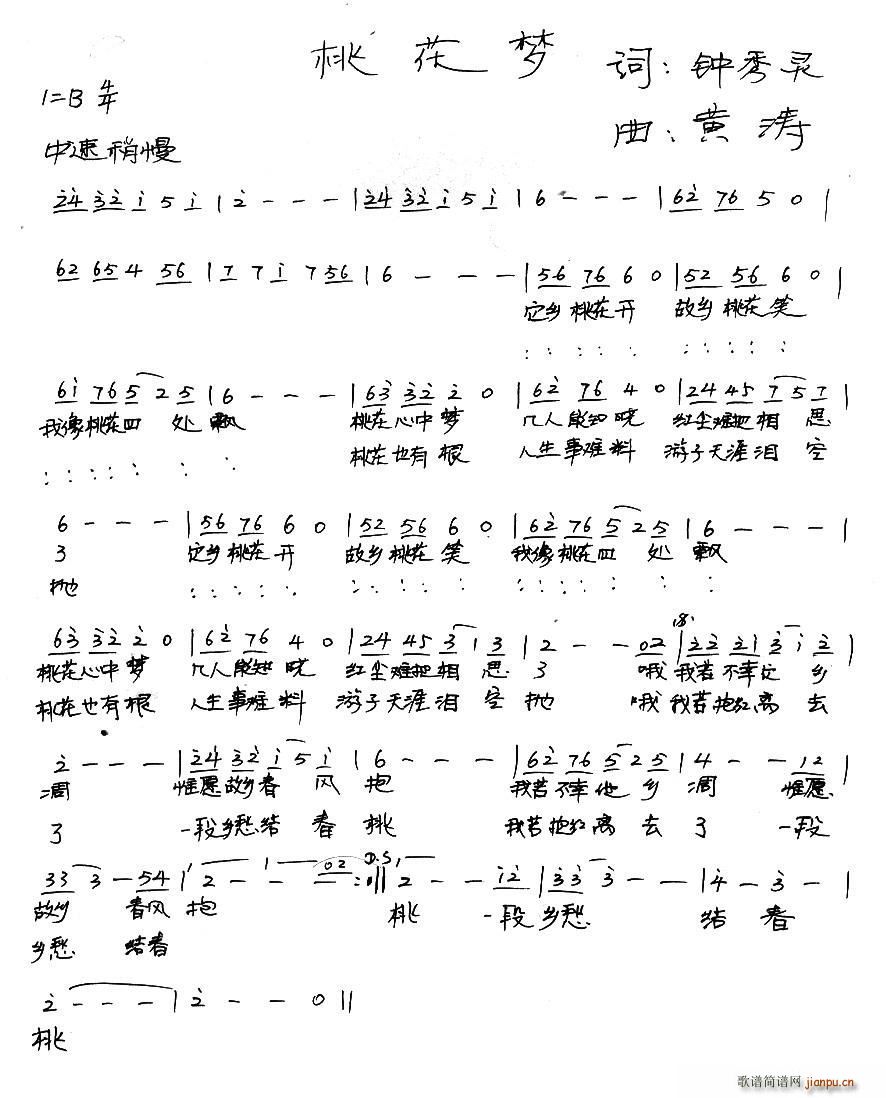 桃花梦 词:钟秀灵
1=B 4/4 曲:黄涛
中速稍慢
24 32 1 5 1 | 2 - - - | 24 32 1 5 1 | 6 - - - | 62 76 5 0 |
62 65 4 56 | 7 7 1 7 56 | 6 - - - | 56 76 6 0 | 52 56 6 0 |
它乡桃花开 故乡桃花笑
: : : : : : : : : :
61 76 5 2 5 | 6 - - - | 63 32 2 0 | 62 76 4 0 | 24 45 7 5 7
我像桃花四 处 飘 桃花心中梦 几人能知晓 红尘难把相 思
: : : : : : : 桃花也有根 人生事难料 游子天涯泪 空
6 - - - | 56 76 6 0 | 52 56 6 0 | 62 76 5 2 5 | 6 - - - |
了 它乡桃花开 故乡桃花笑 我像桃花四 处 飘
抛 : : : : : : : : : : : : : : : : :
63 32 2 0 | 62 76 4 0 | 24 45 3 1 3 | 2 - - 02 | 22 21 3 1 2 |
桃花心中梦 几人能知晓 红尘难把相 思 了 哦 我若不幸它 乡
桃花也有根 人生事难料 游子天涯泪 空 抛 哦 我若抱红离 去
2 - - - | 24 32 1 5 1 | 6 - - - | 62 76 5 2 5 | 4 - - 12 |
凋 惟愿故乡春 风 抱 我若不幸他 乡 凋 惟愿
了 一段乡愁结 春 桃 我若抱红离 去 了 一段
33 3 - 54 | 2 - - - 02 :|| D.S. 2 - - 12 | 33 3 - - | 4 - 3 - |
故乡 春风 抱 桃 一段 乡愁 结 春
乡愁 结春
2 - - - | 2 - - 0 ||
桃
歌谱简谱网 jianpu.cn